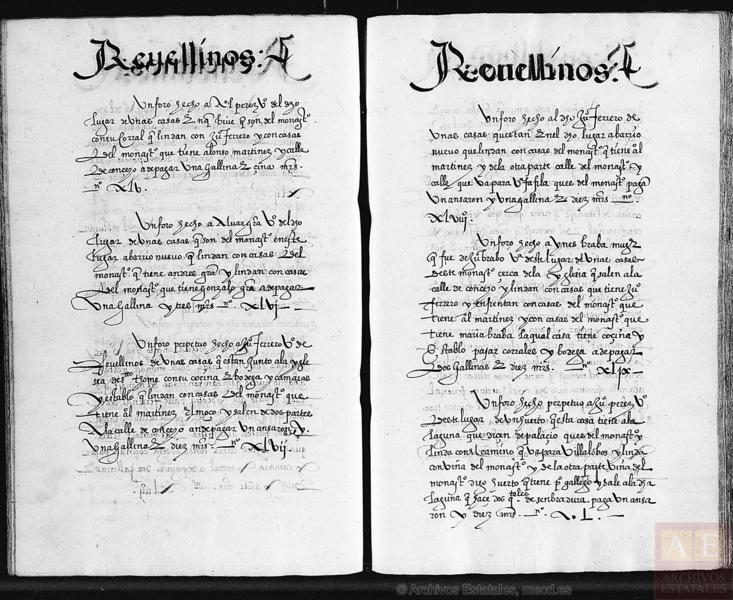 Revellinos: 4
Un foro hecho a Al perez vº del dho
lugar de unas casas En q bive q son del monastº
con su corral q lindan con Juº ferrero y con casas
del monastº que tiene alonso martinez y calle
de conçejo a de pagar una gallina E çinco mrs
nº XLV.
Un foro hecho a Alvar gra vº del dho
lugar de unas casas q son del monastº en este
lugar a barrio nuevo q lindan con casas del
monastº q tiene andres gra y lindan con casas
del monastº que tiene gonzalo gra a de pagar
una gallina y tres mrs nº XLVI
Un foro perpetuo hecho a Juº ferrero vº de
Revellinos de unas casas q estan junto a la ygle
sia de sto tome con su cocina E bodega y camaras
y establo q lindan con casas del monastº que
tiene al martinez el moço y salen de dos partes
a la calle de conçejo an de pagar un ansaron y
una gallina E diez mrs nº XLVII
Revellinos: 4
Un foro hecho al dho Juº ferrero de
unas casas que stan En el dho lugar a barrio
nuevo que lindan con casas del monastº q tiene al
martinez y de la otra parte calle del monastº y
calle que va para Villafila que es del monastº paga
un ansaron y una gallina E diez mrs nº
XLVIII:
Un foro hecho a ynes braba muger
q fue de Juº brabo vº deste lugar de unas casas
deste monastº cerca de la yglesia q salen a la
calle de conçejo y lindan con casas que tiene Juº
ferrero y enfrentan con casas del monastº que
tiene al martinez y con casas del monastº que
tiene maria braba la qual casa tiene coçina y
Establo pajar corrales y bodega a de pagar
dos gallinas E diez mrs. nº XLIX
Un foro hecho perpetuo a Juº perez vº
deste lugar de un huerto questa tiene a la
laguna que diçen de palaçio que es del monastº y
linda con el camino q va para Villalobos y linda
con viña del monastº y de la otra parte viña del
monastº digo huerto q tiene pº gallego y sale a la dha
laguna q haçe dos qºs de senbradura. paga un ansa
ron y diez mrs. nº L.
A E
ARCHIVOS
ESTATALES
© Archivos Estatales, mecd.es